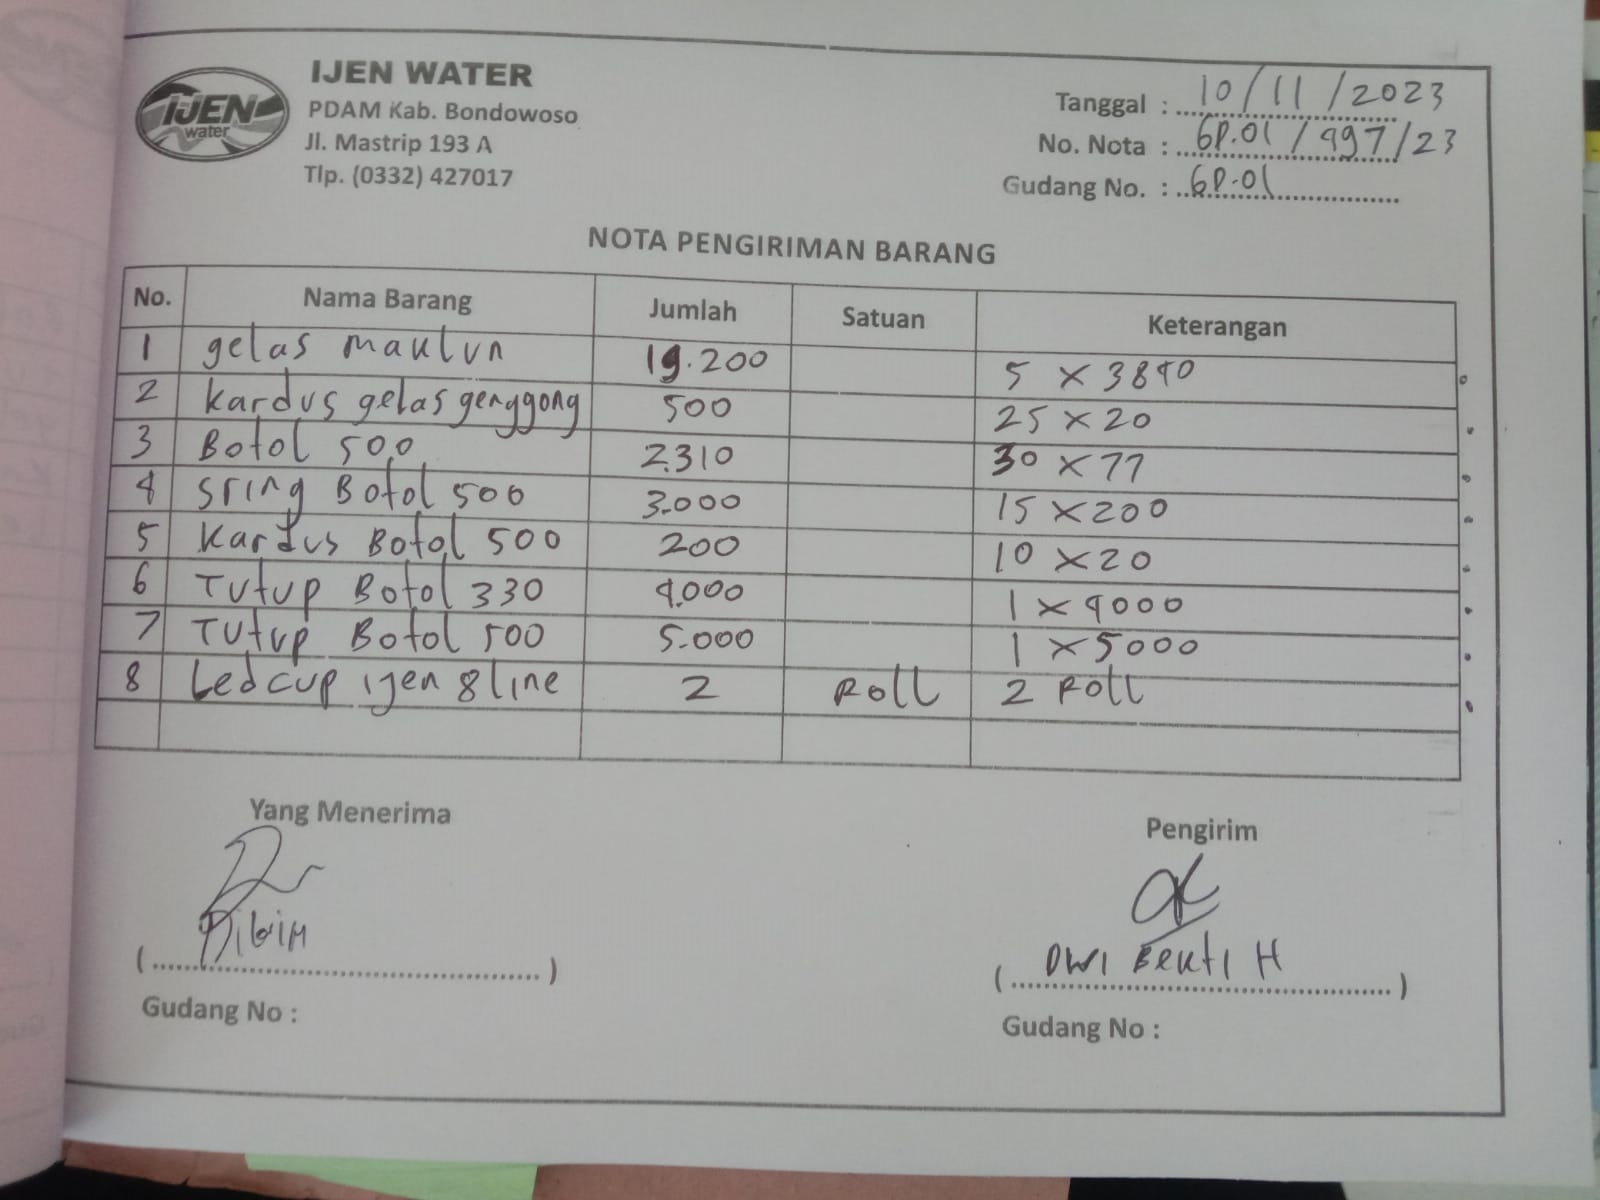 IJEN
water
IJEN WATER
PDAM Kab. Bondowoso
Jl. Mastrip 193 A
Tlp. (0332) 427017
Tanggal : 10/11/2023
No. Nota : GP.01/997/23
Gudang No. : GP.01
NOTA PENGIRIMAN BARANG
No. Nama Barang Jumlah Satuan Keterangan
1 gelas maklun 19.200 5 x 3840
2 Kardus gelas genggong 500 25 x 20
3 Botol 500 2.310 30 x 77
4 Sring Botol 500 3.000 15 x 200
5 Kardus Botol 500 200 10 x 20
6 Tutup Botol 330 4.000 1 x 4000
7 Tutup Botol 500 5.000 1 x 5000
8 Ledcup ijen 8 line 2 Roll 2 Roll
Yang Menerima
Pengirim
DWI BEKTI H
Gudang No :
Gudang No :